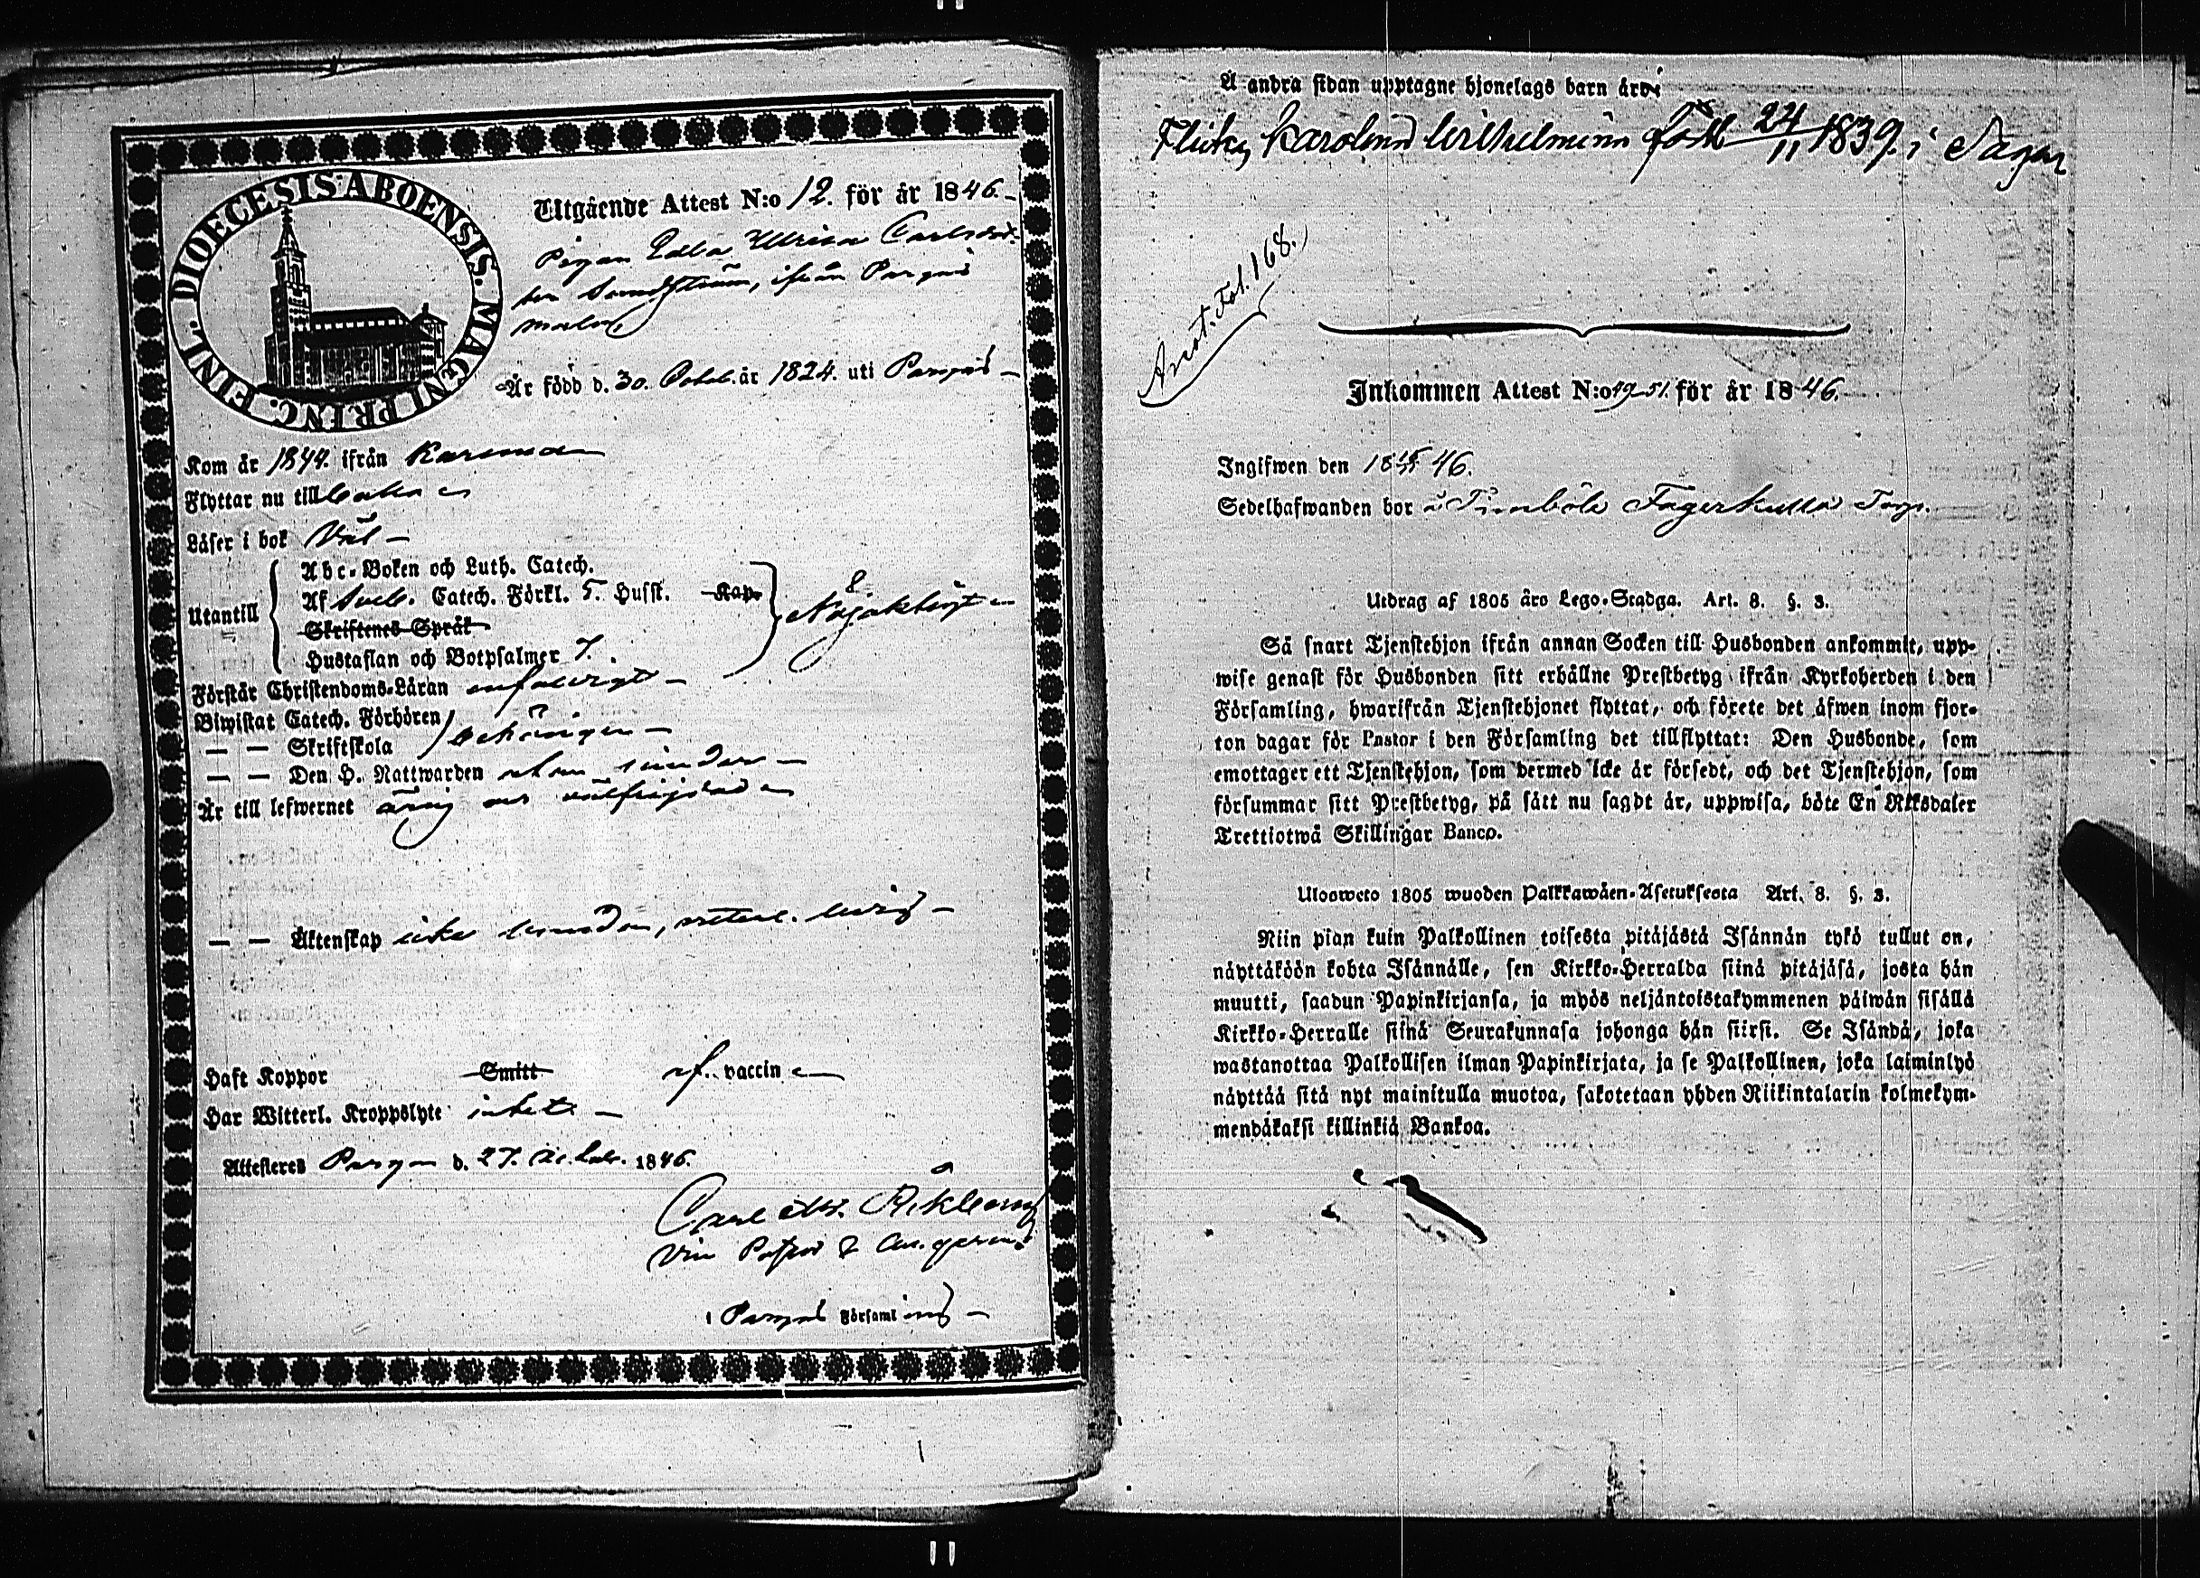 DIOECESIS ABOENSIS. MAGNI PRINC. FINL.
Utgående Attest N:o 12. för år 1846.
Pigan Edla Ulrica Carlsdot-
ter Sundström, ifrån Pargas
malm,
Är född d. 30. Octob. år 1824. uti Pargas
Kom år 1844. ifrån
Flyttar nu till
Läser i bok Väl
Utantill
Abc-Boken och Luth. Catech.
Af Sveb. Catech. Förkl. 5. Hufst. Kap.
Skriftenes Språk
Hustaflan och Botpsalmer 7.
Nöjaktligt
Förstår Christendoms-Läran enfaldigt
Biwistat Catech. Förhören
— — Skriftskola
behörigen
— — Den H. Nattwarden utan hinder
Är till lefwernet ärlig och välfrejdad
— — Äktenskap icke bunden, veterl. ledig
Haft Koppor Smitt vaccin
Har Witterl. Kroppslyte intet
Attesteras Pargas d. 27. October 1846.
Carl
Vice Pastor
i Pargas Församling
Å andra sidan upptagne hjonelags barn äro:
Flickan Karolina Wilhelmina född 24/11 1839. i Sagu
Fol. 168.
Inkommen Attest N:o 49-51. för år 1846.
Ingifwen den 18 46.
Sedelhafwanden bor å Fagerkulla
Utdrag af 1805 års Lego-Stadga. Art. 8. §. 3.
Så snart Tjenstehjon ifrån annan Socken till Husbonden ankommit, upp-
wise genast för Husbonden sitt erhållne Prestbetyg ifrån Kyrkoherden i den
Församling, hwarifrån Tjenstehjonet flyttat, och förete det äfwen inom fjor-
ton dagar för Pastor i den Församling det tillflyttat: Den Husbonde, som
emottager ett Tjenstehjon, som dermed icke är försedt, och det Tjenstehjon, som
försummar sitt Prestbetyg, på sätt nu sagdt är, uppwisa, böte En Riksdaler
Trettiotwå Skillingar Banco.
Ulosweto 1805 wuoden Palkkawäen-Asetuksesta Art. 8. §. 3.
Niin pian kuin Palkollinen toisesta pitäjästä Isännän tykö tullut on,
näyttäköön kohta Isännälle, sen Kirkko-Herralda siinä pitäjäsä, josta hän
muutti, saadun Papinkirjansa, ja myös neljäntoistakymmenen päiwän sisällä
Kirkko-Herralle siinä Seurakunnasa johonga hän siirsi. Se Isändä, joka
wastanottaa Palkollisen ilman Papinkirjata, ja se Palkollinen, joka laiminlyö
näyttää sitä nyt mainitulla muotoa, sakotetaan yhden Riikintalarin kolmekym-
mendäkaksi killinkiä Bankoa.